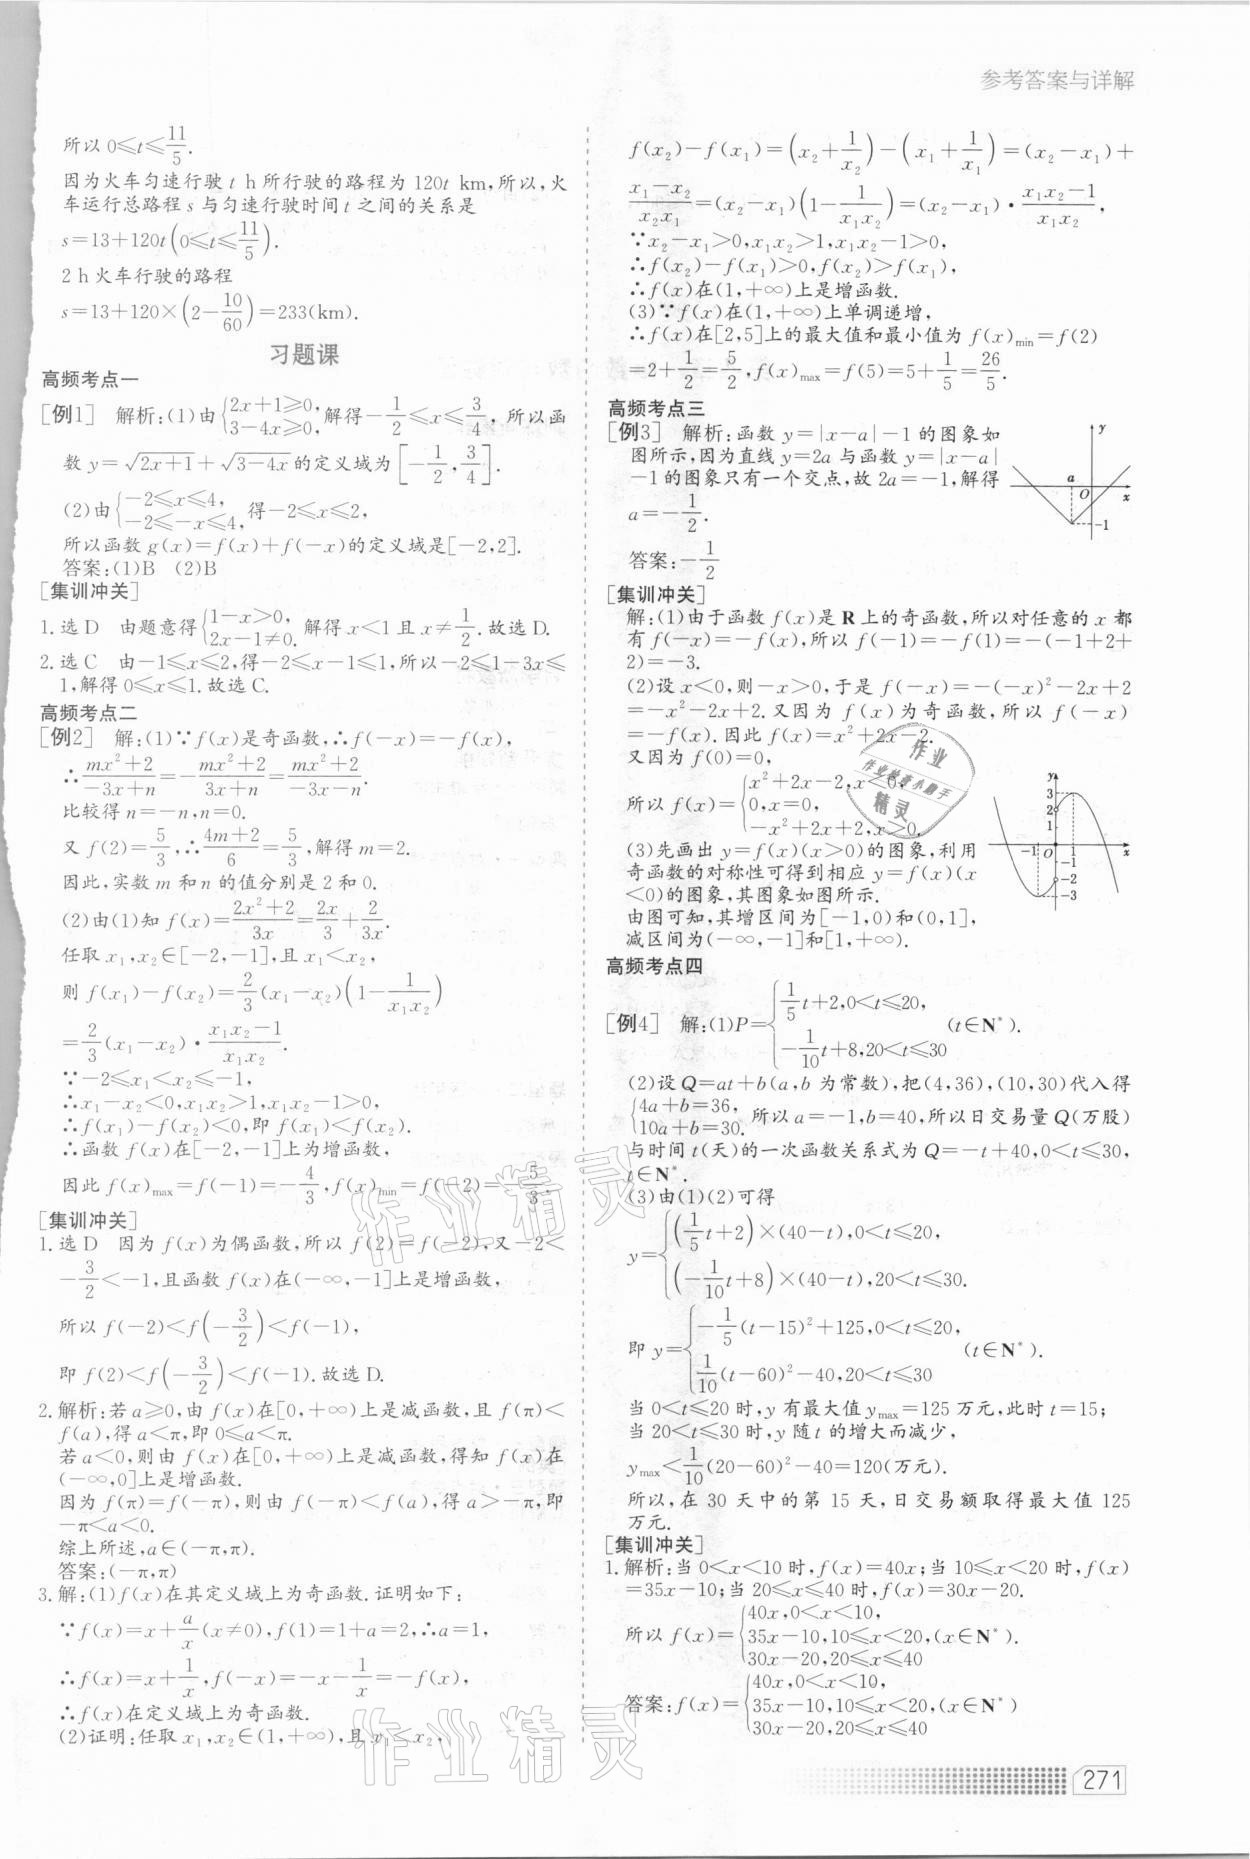 参考答案与详解
所以0≤t≤11/5.
因为火车匀速行驶 t h所行驶的路程为120t km,所以,火
车运行总路程s与匀速行驶时间t之间的关系是
s=13+120t(0≤t≤11/5).
2 h火车行驶的路程
s=13+120×(2-10/60)=233(km).
习题课
高频考点一
[例1] 解析:(1)由{2x+1≥0, 3-4x≥0, 解得-1/2≤x≤3/4, 所以函
数y=√(2x+1)+√(3-4x)的定义域为[-1/2,3/4].
(2)由{-2≤x≤4, -2≤-x≤4, 得-2≤x≤2,
所以函数g(x)=f(x)+f(-x)的定义域是[-2,2].
答案:(1)B (2)B
[集训冲关]
1.选D 由题意得{1-x>0, 2x-1≠0. 解得x<1且x≠1/2.故选D.
2.选C 由-1≤x≤2,得-2≤x-1≤1,所以-2≤1-3x≤
1,解得0≤x≤1.故选C.
高频考点二
[例2] 解:(1)∵f(x)是奇函数,∴f(-x)=-f(x),
∴(mx²+2)/(-3x+n)=-(mx²+2)/(3x+n)=(mx²+2)/(-3x-n).
比较得n=-n,n=0.
又f(2)=5/3,∴(4m+2)/6=5/3,解得m=2.
因此,实数m和n的值分别是2和0.
(2)由(1)知f(x)=(2x²+2)/3x=2x/3+2/3x.
任取x₁,x₂∈[-2,-1],且x₁<x₂,
则f(x₁)-f(x₂)=2/3(x₁-x₂)(1-1/x₁x₂)
=2/3(x₁-x₂)·(x₁x₂-1)/x₁x₂.
∵-2≤x₁<x₂≤-1,
∴x₁-x₂<0,x₁x₂>1,x₁x₂-1>0,
∴f(x₁)-f(x₂)<0,即f(x₁)<f(x₂).
∴函数f(x)在[-2,-1]上为增函数,
因此f(x)max=f(-1)=-4/3,f(x)min=f(-2)=-5/3.
[集训冲关]
1.选D 因为f(x)为偶函数,所以f(2)=f(-2),又-2<
-3/2<-1,且函数f(x)在(-∞,-1]上是增函数,
所以f(-2)<f(-3/2)<f(-1),
即f(2)<f(-3/2)<f(-1).故选D.
2.解析:若a≥0,由f(x)在[0,+∞)上是减函数,且f(π)<
f(a),得a<π,即0≤a<π.
若a<0,则由f(x)在[0,+∞)上是减函数,得知f(x)在
(-∞,0]上是增函数.
因为f(π)=f(-π),则由f(-π)<f(a),得a>-π,即
-π<a<0.
综上所述,a∈(-π,π).
答案:(-π,π)
3.解:(1)f(x)在其定义域上为奇函数.证明如下:
∵f(x)=x+a/x(x≠0),f(1)=1+a=2,∴a=1,
∴f(x)=x+1/x,f(-x)=-x-1/x=-f(x),
∴f(x)在定义域上为奇函数.
(2)证明:任取x₁,x₂∈(1,+∞),且x₁<x₂,
f(x₂)-f(x₁)=(x₂+1/x₂)-(x₁+1/x₁)=(x₂-x₁)+
(x₁-x₂)/x₂x₁=(x₂-x₁)(1-1/x₁x₂)=(x₂-x₁)·(x₁x₂-1)/x₁x₂,
∵x₂-x₁>0,x₁x₂>1,x₁x₂-1>0,
∴f(x₂)-f(x₁)>0,f(x₂)>f(x₁),
∴f(x)在(1,+∞)上是增函数.
(3)∵f(x)在(1,+∞)上单调递增,
∴f(x)在[2,5]上的最大值和最小值为f(x)min=f(2)
=2+1/2=5/2,f(x)max=f(5)=5+1/5=26/5.
高频考点三
[例3] 解析:函数y=|x-a|-1的图象如
图所示,因为直线y=2a与函数y=|x-a|
-1的图象只有一个交点,故2a=-1,解得
a=-1/2.
y a O x -1
答案:-1/2
[集训冲关]
解:(1)由于函数f(x)是R上的奇函数,所以对任意的x都
有f(-x)=-f(x),所以f(-1)=-f(1)=-(-1+2+
2)=-3.
(2)设x<0,则-x>0,于是f(-x)=-(-x)²-2x+2
=-x²-2x+2.又因为f(x)为奇函数,所以f(-x)
=-f(x).因此f(x)=x²+2x-2.
又因为f(0)=0,
所以f(x)={x²+2x-2,x<0, 0,x=0, -x²+2x+2,x>0.
(3)先画出y=f(x)(x>0)的图象,利用
奇函数的对称性可得到相应y=f(x)(x
<0)的图象,其图象如图所示.
由图可知,其增区间为[-1,0)和(0,1],
减区间为(-∞,-1]和[1,+∞).
y 3 2 1 -1 O 1 x -1 -2 -3
高频考点四
[例4] 解:(1)P={1/5t+2,0<t≤20, -1/10t+8,20<t≤30 (t∈N*).
(2)设Q=at+b(a,b为常数),把(4,36),(10,30)代入得
{4a+b=36, 10a+b=30. 所以a=-1,b=40,所以日交易量Q(万股)
与时间t(天)的一次函数关系式为Q=-t+40,0<t≤30,
t∈N*.
(3)由(1)(2)可得
y={(1/5t+2)×(40-t),0<t≤20, (-1/10t+8)×(40-t),20<t≤30.
即y={-1/5(t-15)²+125,0<t≤20, 1/10(t-60)²-40,20<t≤30 (t∈N*).
当0<t≤20时,y有最大值ymax=125万元,此时t=15;
当20<t≤30时,y随t的增大而减少,
ymax<1/10(20-60)²-40=120(万元).
所以,在30天中的第15天,日交易额取得最大值125
万元.
[集训冲关]
1.解析:当0<x<10时,f(x)=40x;当10≤x<20时,f(x)
=35x-10;当20≤x≤40时,f(x)=30x-20.
所以f(x)={40x,0<x<10, 35x-10,10≤x<20,(x∈N*). 30x-20,20≤x≤40
答案:f(x)={40x,0<x<10, 35x-10,10≤x<20,(x∈N*) 30x-20,20≤x≤40
作业精灵
作业精灵
作业
作业检查小助手
精灵
271